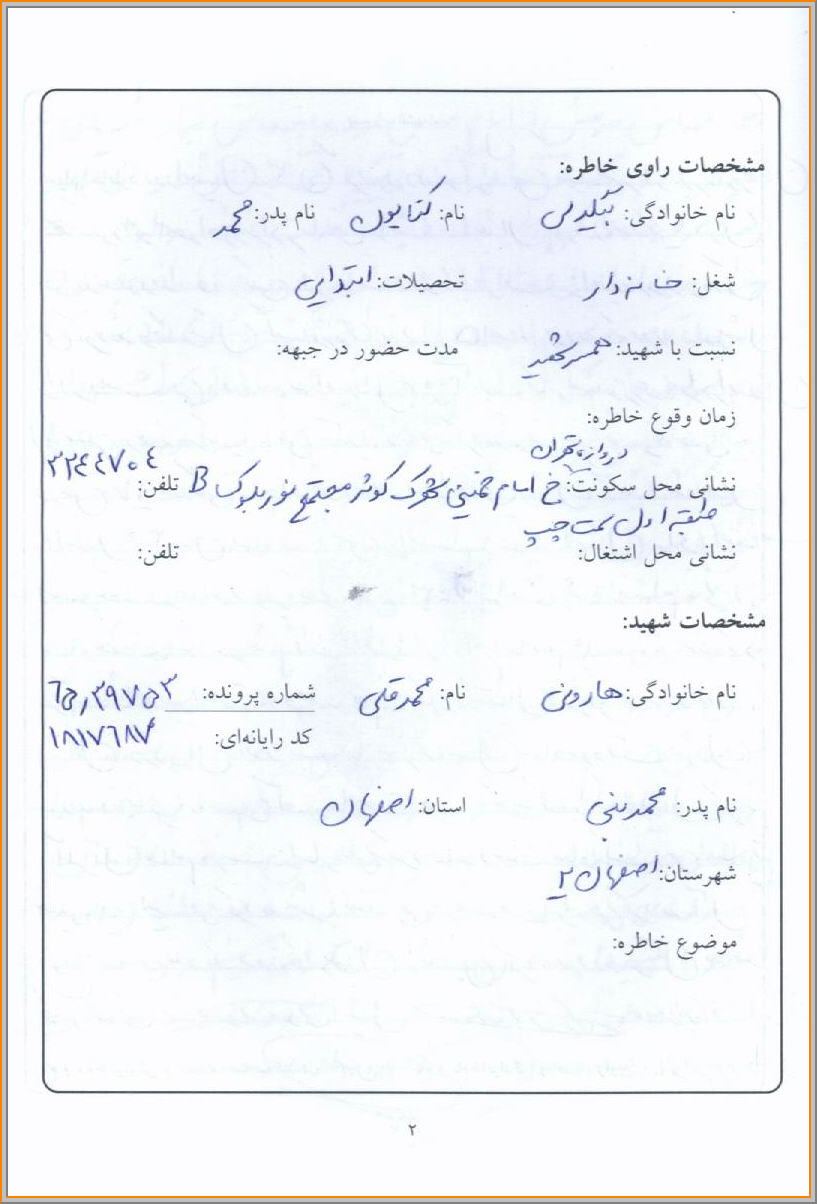 مشخصات راوی خاطره:
نام خانوادگی: بیگدلی نام: کتایون نام پدر: محمد
شغل: خانه دار تحصیلات: ابتدایی
نسبت با شهید: همسر شهید مدت حضور در جبهه:
زمان وقوع خاطره:
دروازه تهران ۳۲۴۴۷۰۴
نشانی محل سکونت: خ امام خمینی شهرک کوثر مجتمع نور بلوک B تلفن:
طبقه اول سمت چپ
نشانی محل اشتغال: تلفن:
مشخصات شهید:
نام خانوادگی: هارونی نام: محمدقلی شماره پرونده:
کد رایانه‌ای: ۱۸۱۷۶۸۷
نام پدر: محمدنبی استان: اصفهان
شهرستان: اصفهان ۲
موضوع خاطره:
۲